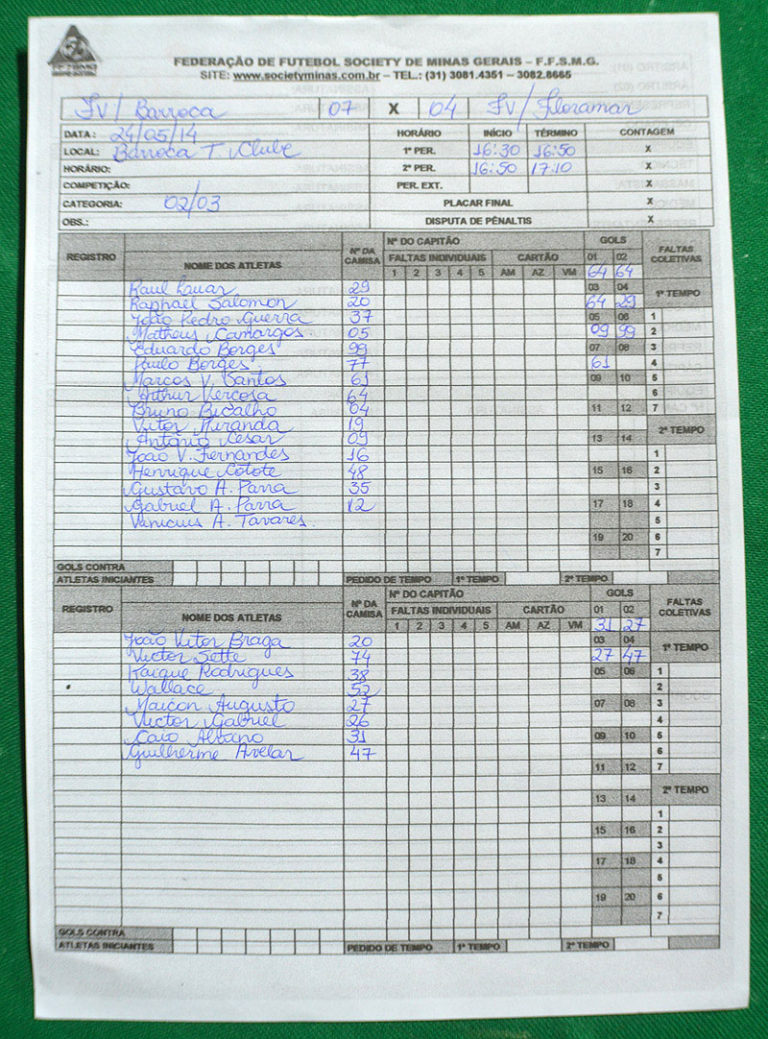 FEDERAÇÃO DE FUTEBOL SOCIETY DE MINAS GERAIS – F.F.S.M.G.
SITE: www.societyminas.com.br – TEL.: (31) 3081.4351 – 3082.8665
SV/ Barroca 07 X 04 SV/ Floramar
DATA: 24/05/14 HORÁRIO INÍCIO TÉRMINO CONTAGEM
LOCAL: Barroca T. Clube 1º PER. 16:30 16:50 X
HORÁRIO: 2º PER. 16:50 17:10 X
COMPETIÇÃO: PER. EXT. X
CATEGORIA: 02/03 PLACAR FINAL X
OBS.: DISPUTA DE PÊNALTIS X
REGISTRO NOME DOS ATLETAS Nº DA CAMISA Nº DO CAPITÃO GOLS FALTAS COLETIVAS
FALTAS INDIVIDUAIS CARTÃO 01 02
1 2 3 4 5 AM AZ VM 64 64
Raul 29 03 04 1º TEMPO
Raphael Salomon 20 64 29
João Pedro Guerra 37 05 06 1
Matheus Camargos 05 09 99 2
Eduardo Borges 99 07 08 3
Paulo Borges 77 61 4
Marcos V. Santos 61 09 10 5
Arthur Verçosa 64 6
Bruno Bicalho 04 11 12 7
Vitor Miranda 19 2º TEMPO
Antônio Cesar 09 13 14
João V. Fernandes 16 1
Henrique 48 15 16 2
Gustavo A. Parra 35 3
Gabriel A. Parra 12 17 18 4
Vinicius A. Tavares. 5
19 20 6
7
GOLS CONTRA
ATLETAS INICIANTES PEDIDO DE TEMPO 1º TEMPO 2º TEMPO
REGISTRO NOME DOS ATLETAS Nº DA CAMISA Nº DO CAPITÃO GOLS FALTAS COLETIVAS
FALTAS INDIVIDUAIS CARTÃO 01 02
1 2 3 4 5 AM AZ VM 31 27
João Vitor Braga 20 03 04 1º TEMPO
Victor Sette 74 27 47
Kaique Rodrigues 38 05 06 1
Wallace 52 2
Maicon Augusto 27 07 08 3
Victor Gabriel 26 4
Caio Albano 31 09 10 5
Guilherme Avelar 47 6
11 12 7
2º TEMPO
13 14
1
15 16 2
3
17 18 4
5
19 20 6
7
GOLS CONTRA
ATLETAS INICIANTES PEDIDO DE TEMPO 1º TEMPO 2º TEMPO